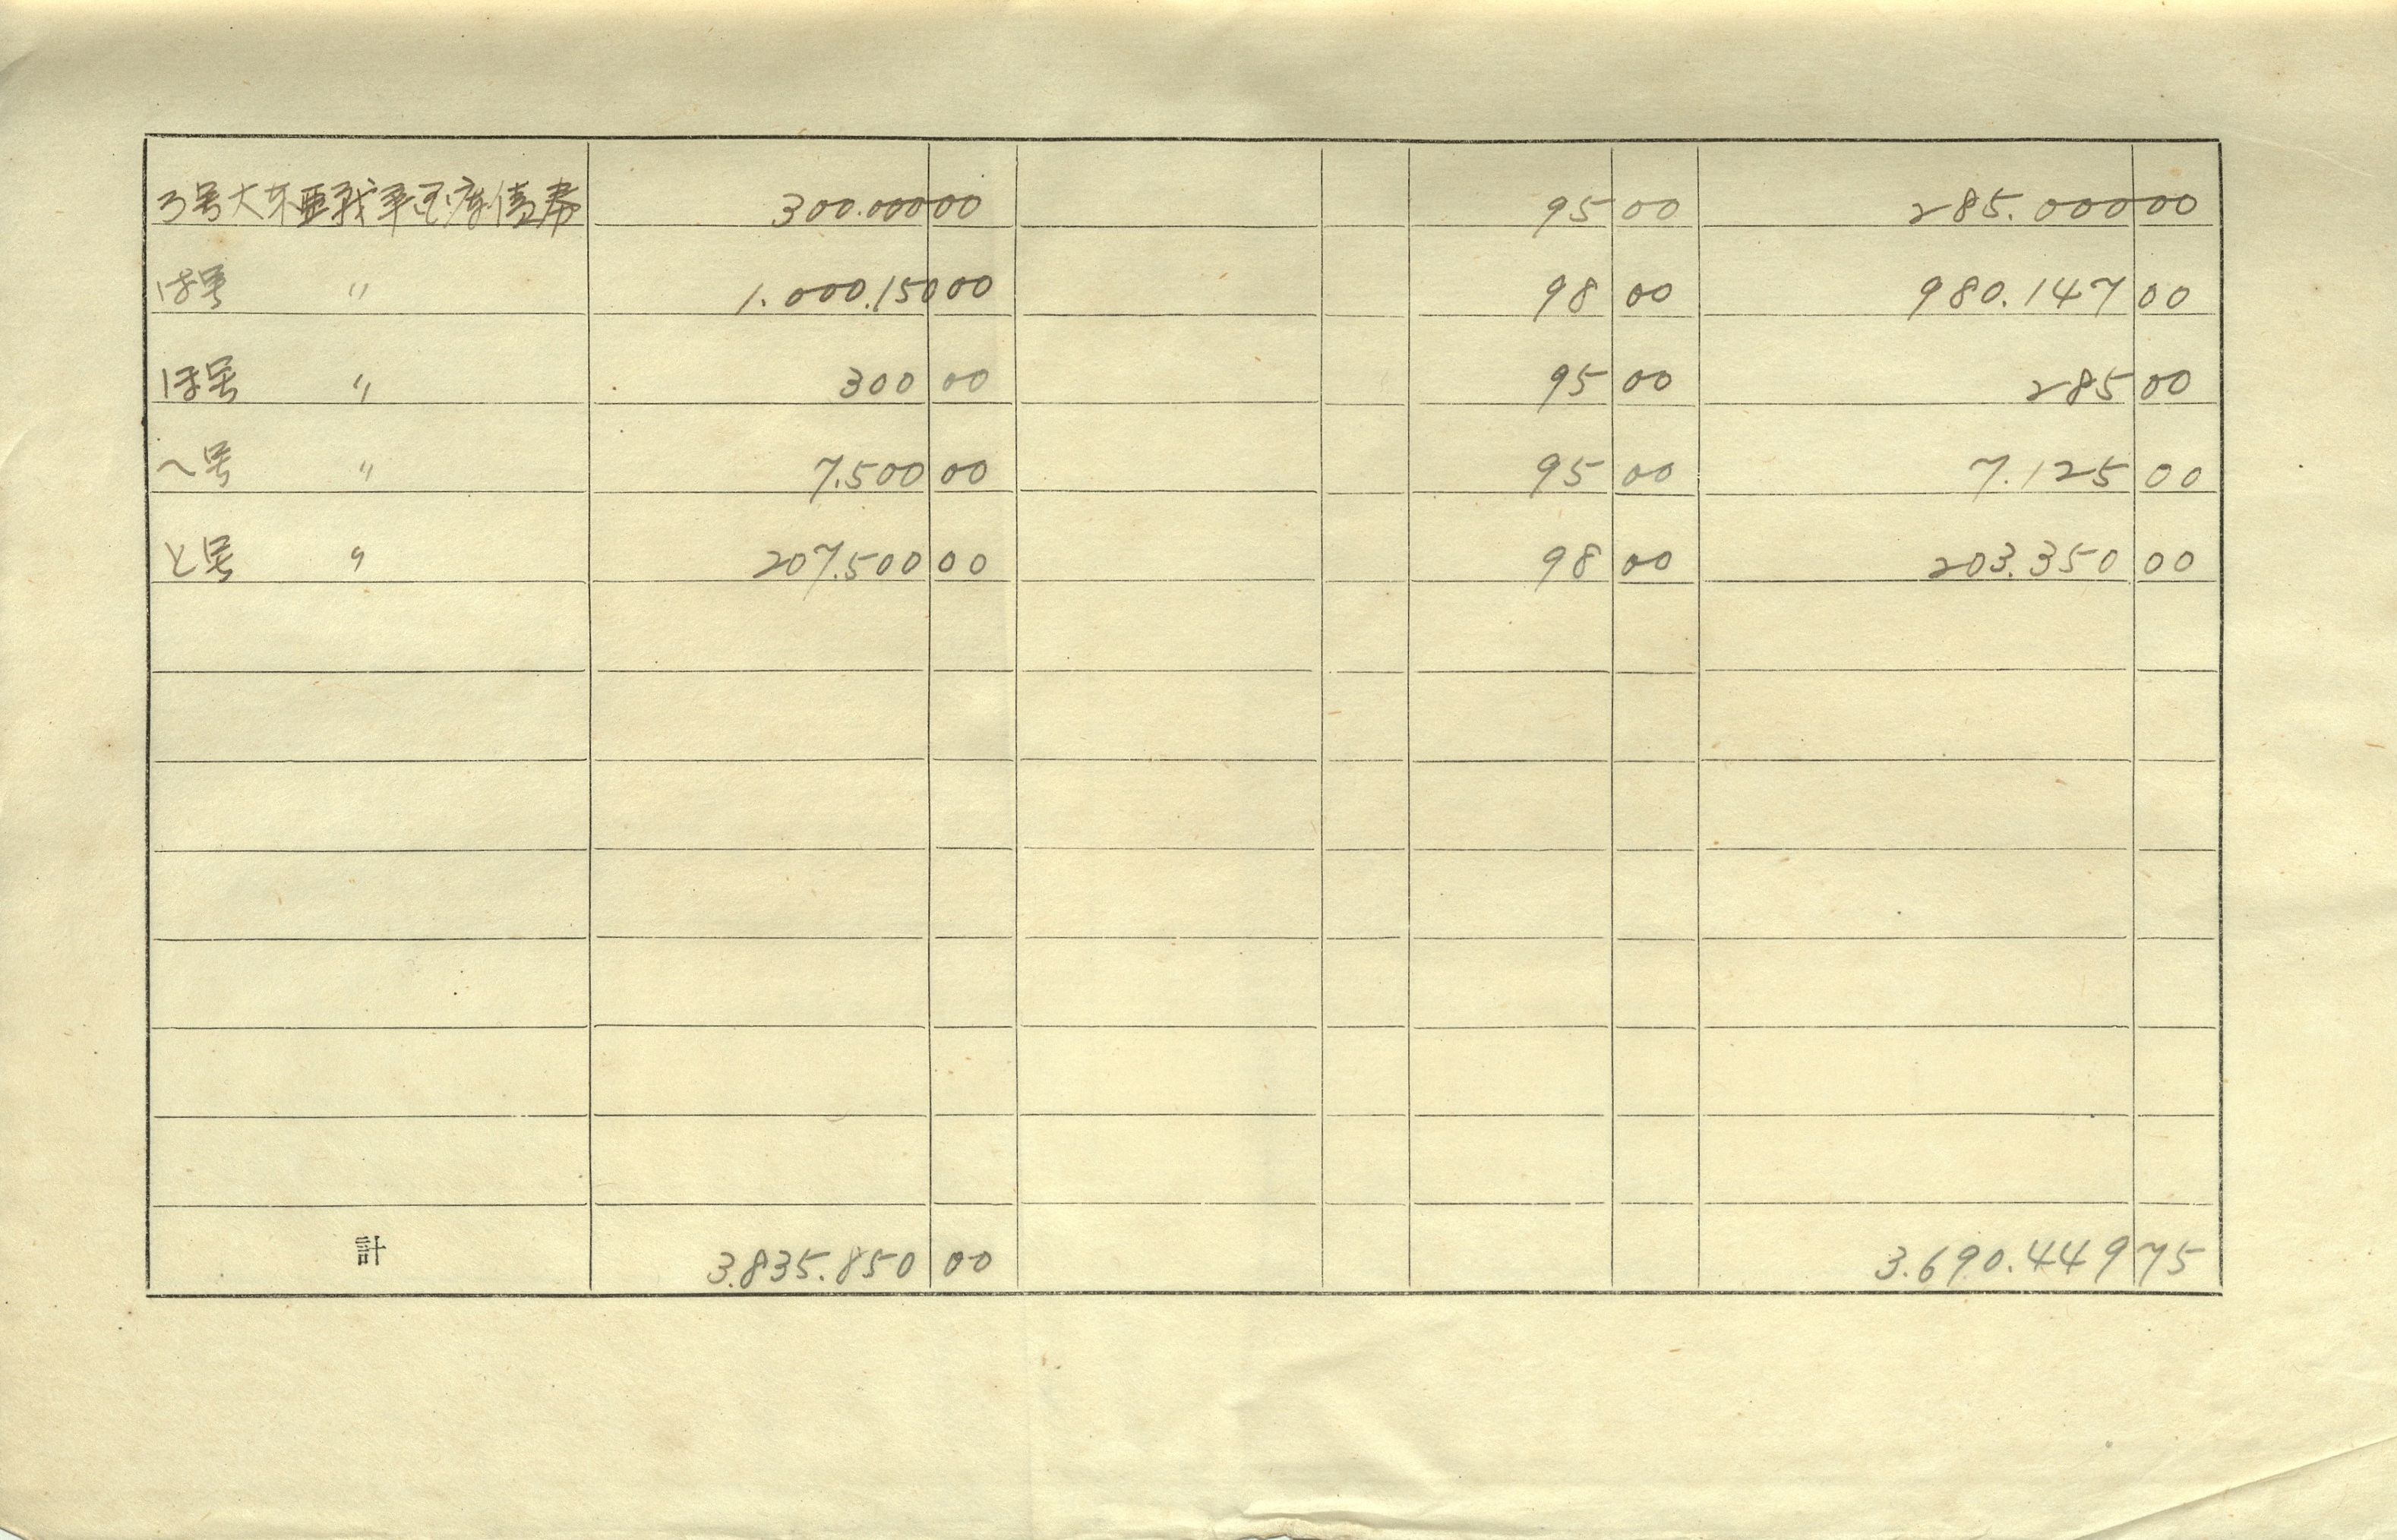 ろ号大東亜戦争国庫債券 300.000 00 95 00 285.000 00
は号 〃 1.000.150 00 98 00 980.147 00
ほ号 〃 300 00 95 00 285 00
へ号 〃 7.500 00 95 00 7.125 00
と号 〃 207.500 00 98 00 203.350 00
計 3.835.850 00 3.690.449 75